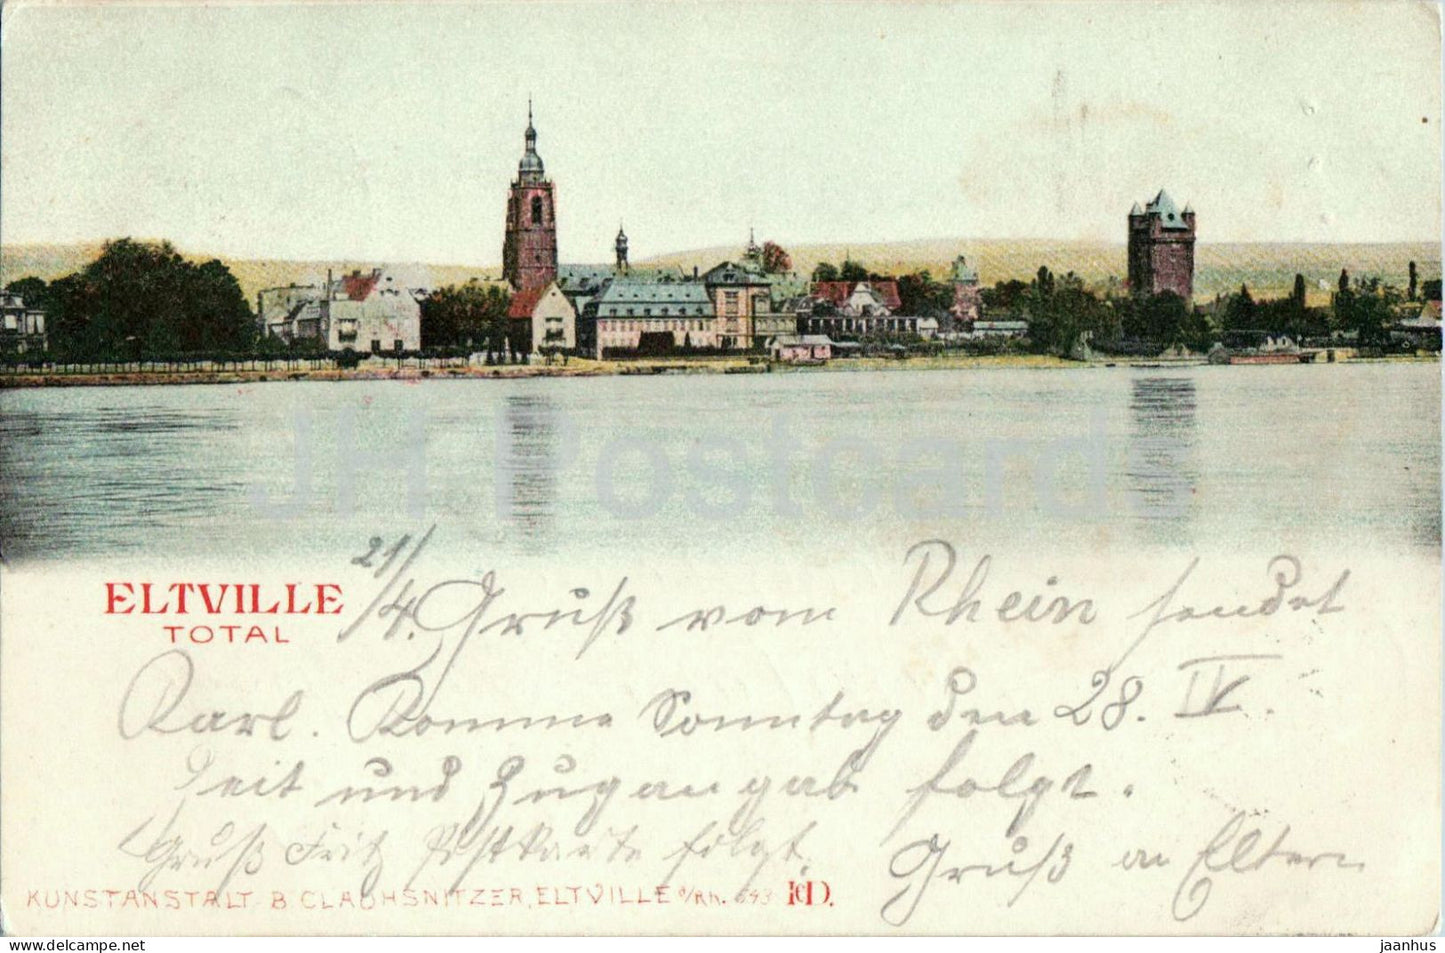 JH Postcards
ELTVILLE
TOTAL
21/4. Gruß vom Rhein sendet
Karl. Komme Sonntag den 28. IV.
Zeit und Zugangab folgt.
Gruß Fritz Postkarte folgt. Gruß an Eltern
KUNSTANSTALT B. CLAUHSNITZER, ELTVILLE a/Rh. 643
delcampe.net
jaanhus